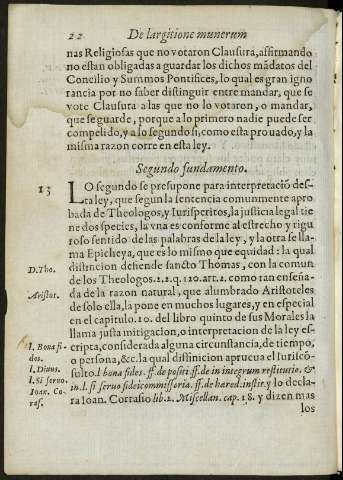 22
De largitione munerum
nas Religiosas que no votaron Clausura, afirmando
no estan obligadas a guardar los dichos mãdatos del
Concilio y Summos Pontifices, lo qual es gran igno
rancia por no saber distinguir entre mandar, que se
vote Clausura a las que no lo votaron, o mandar,
que se guarde, porque a lo primero nadie puede ser
compelido, y a lo segundo si, como esta prouado, y la
misma razon corre en esta ley.
Segundo fundamento.
13
LO segundo se presupone para interpretació des-
ta ley, que segun la sentencia comunmente apro
bada de Theologos, y Iurisperitos, la justicia legal tie
ne dos species, la vna es conforme al estrecho y rigu
roso sentido de las palabras de la ley, y la otra se lla-
ma Epicheya, que es lo mismo que equidad: la qual
D. Tho.
distincion defiende sancto Thomas, con la comun
de los Theologos. 2.2.q.120.art.1. como tan enseña-
Aristot.
da de la razon natural, que alumbrado Aristoteles
de solo ella, la pone en muchos lugares, y en especial
en el capitulo. 10. del libro quinto de sus Morales la
llama justa mitigacion, o interpretacion de la ley es-
l. Bona fi-
cripta, considerada alguna circunstancia, de tiempo,
des.
o persona, &c. la qual distincion aprueua el Iuriscó-
l. Diuus.
sulto. l. bona fides. ff. de positi. ff. de in integrum restitutio. &
l. Si seruo.
in. l. si seruo fideicommisseria. ff. de hæred. instit. y lo decla-
Ioan. Co-
ras.
ra Ioan. Corrasio lib. 2. Miscellan. cap. 18. y dizen mas
los